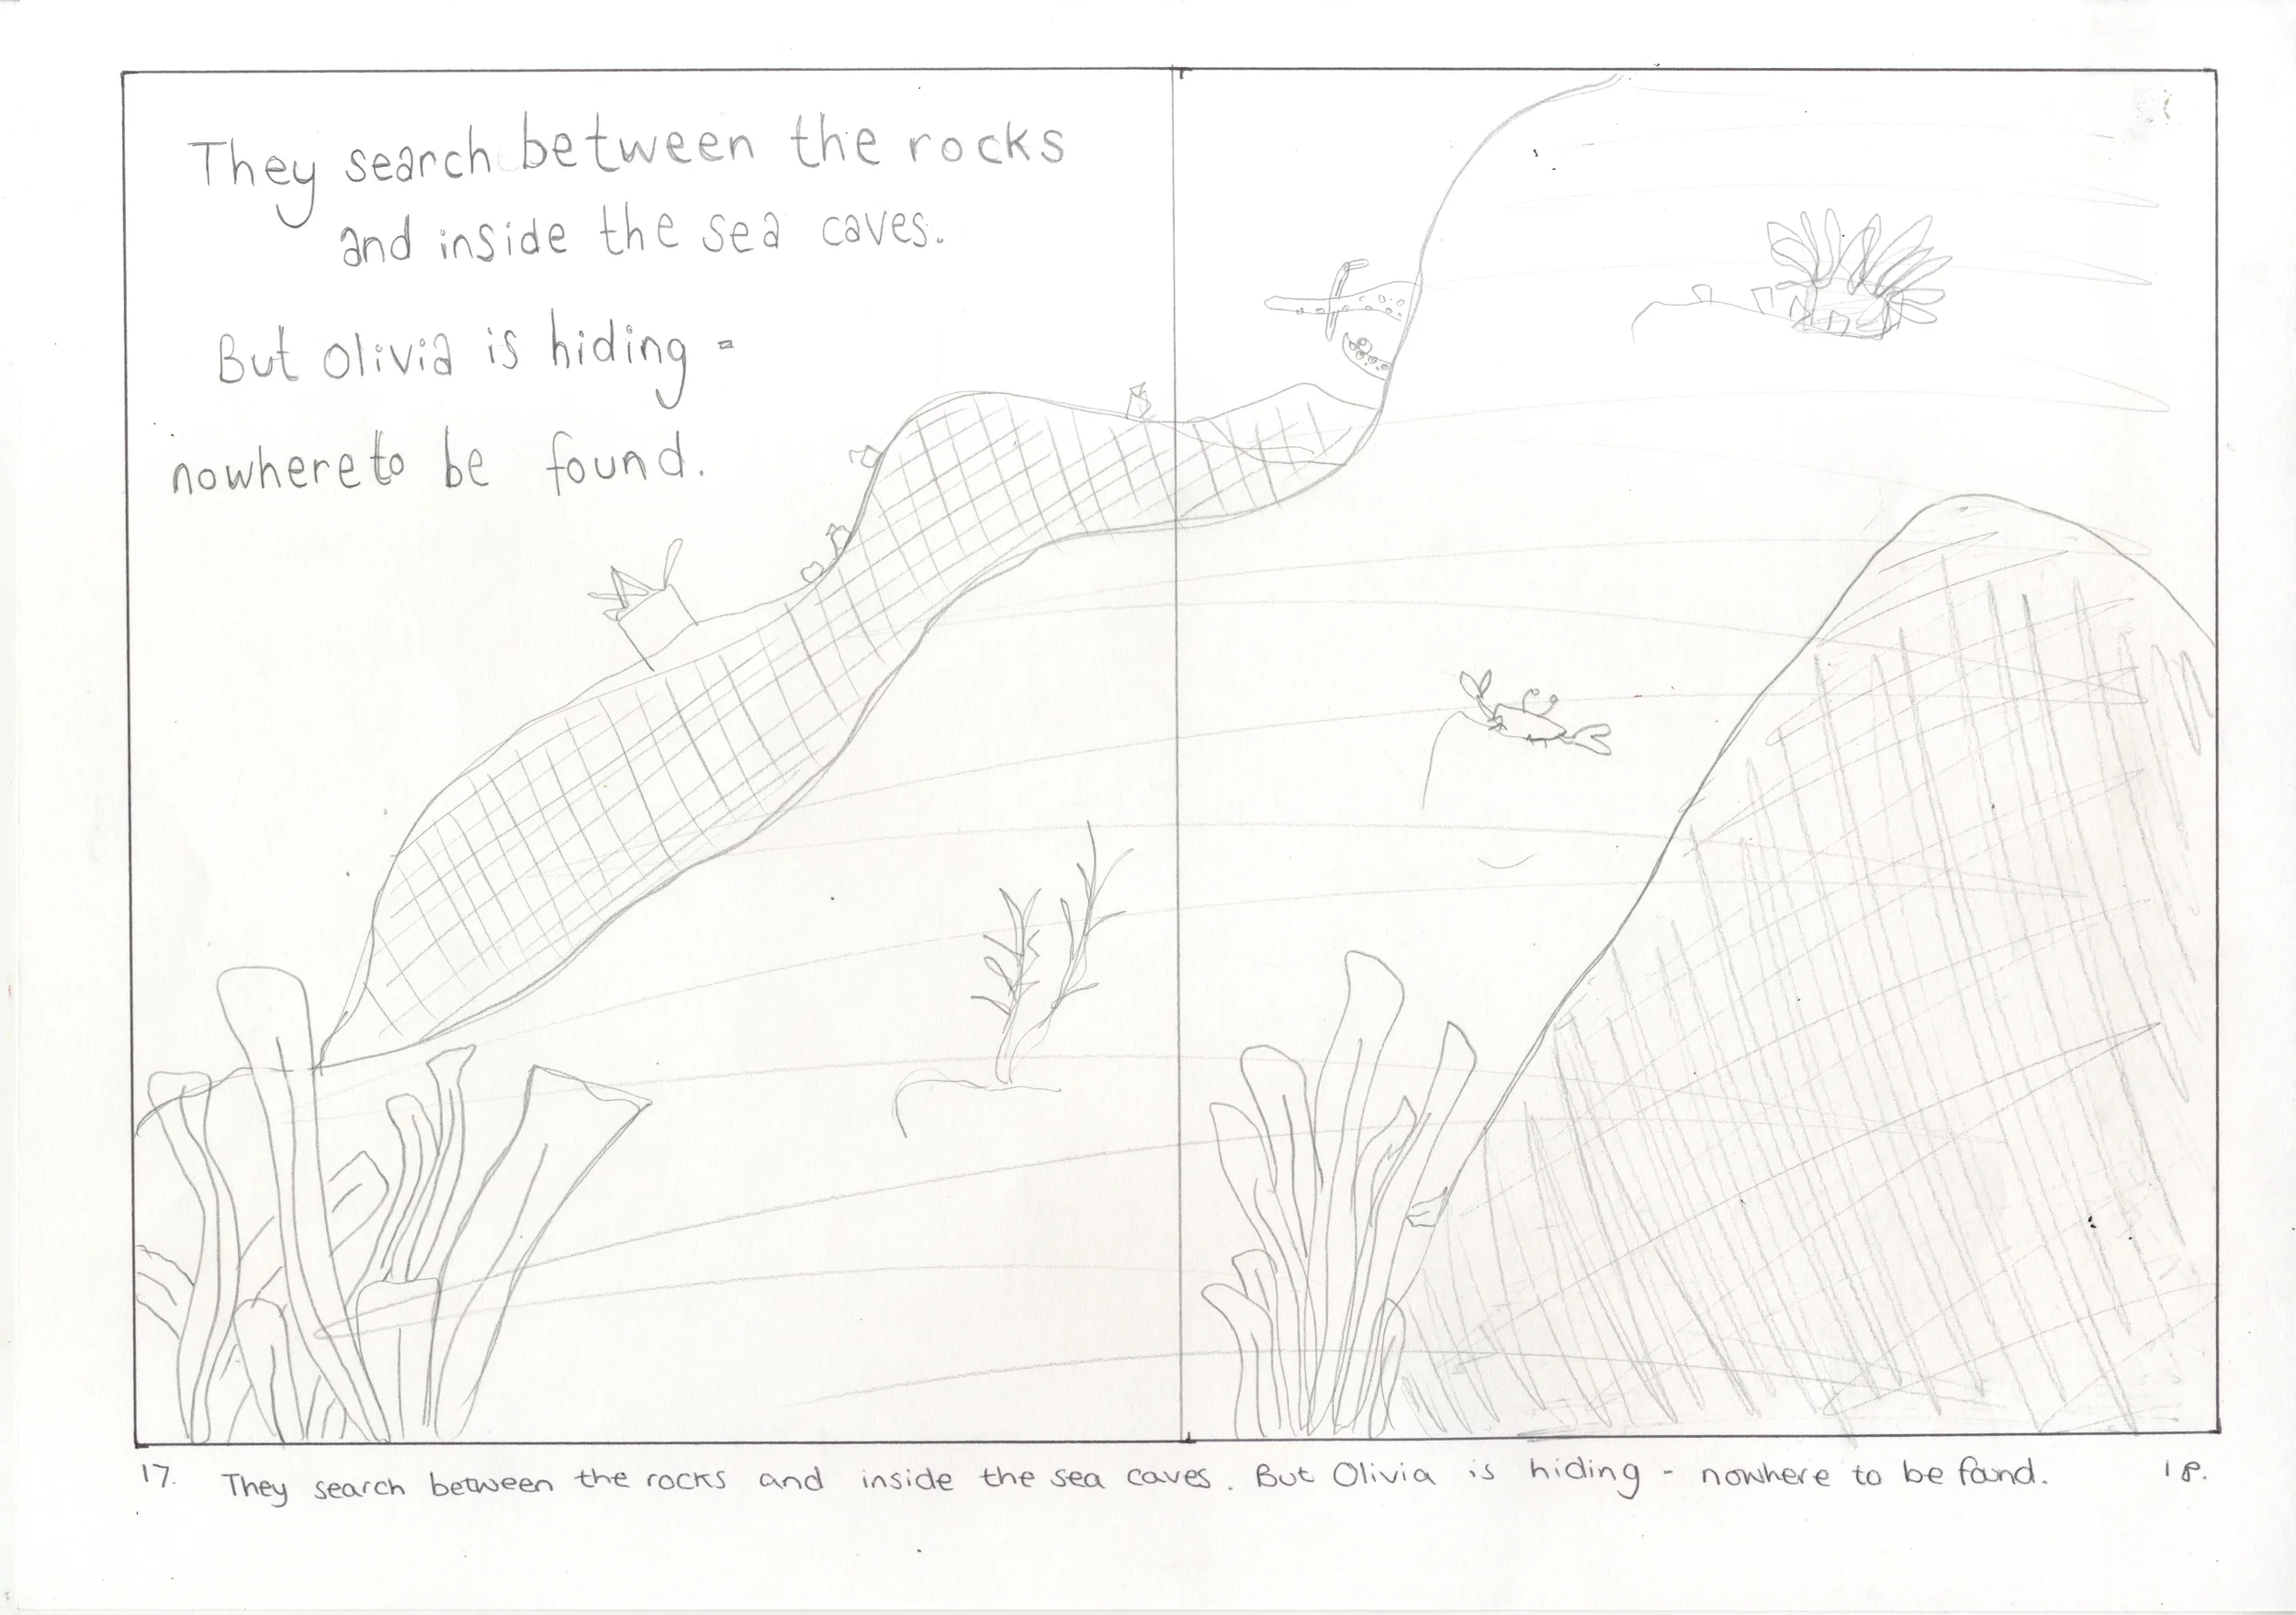 They search between the rocks
and inside the sea caves.
But Olivia is hiding -
nowhere to be found.
17. They search between the rocks and inside the sea caves. But Olivia is hiding - nowhere to be found. 18.